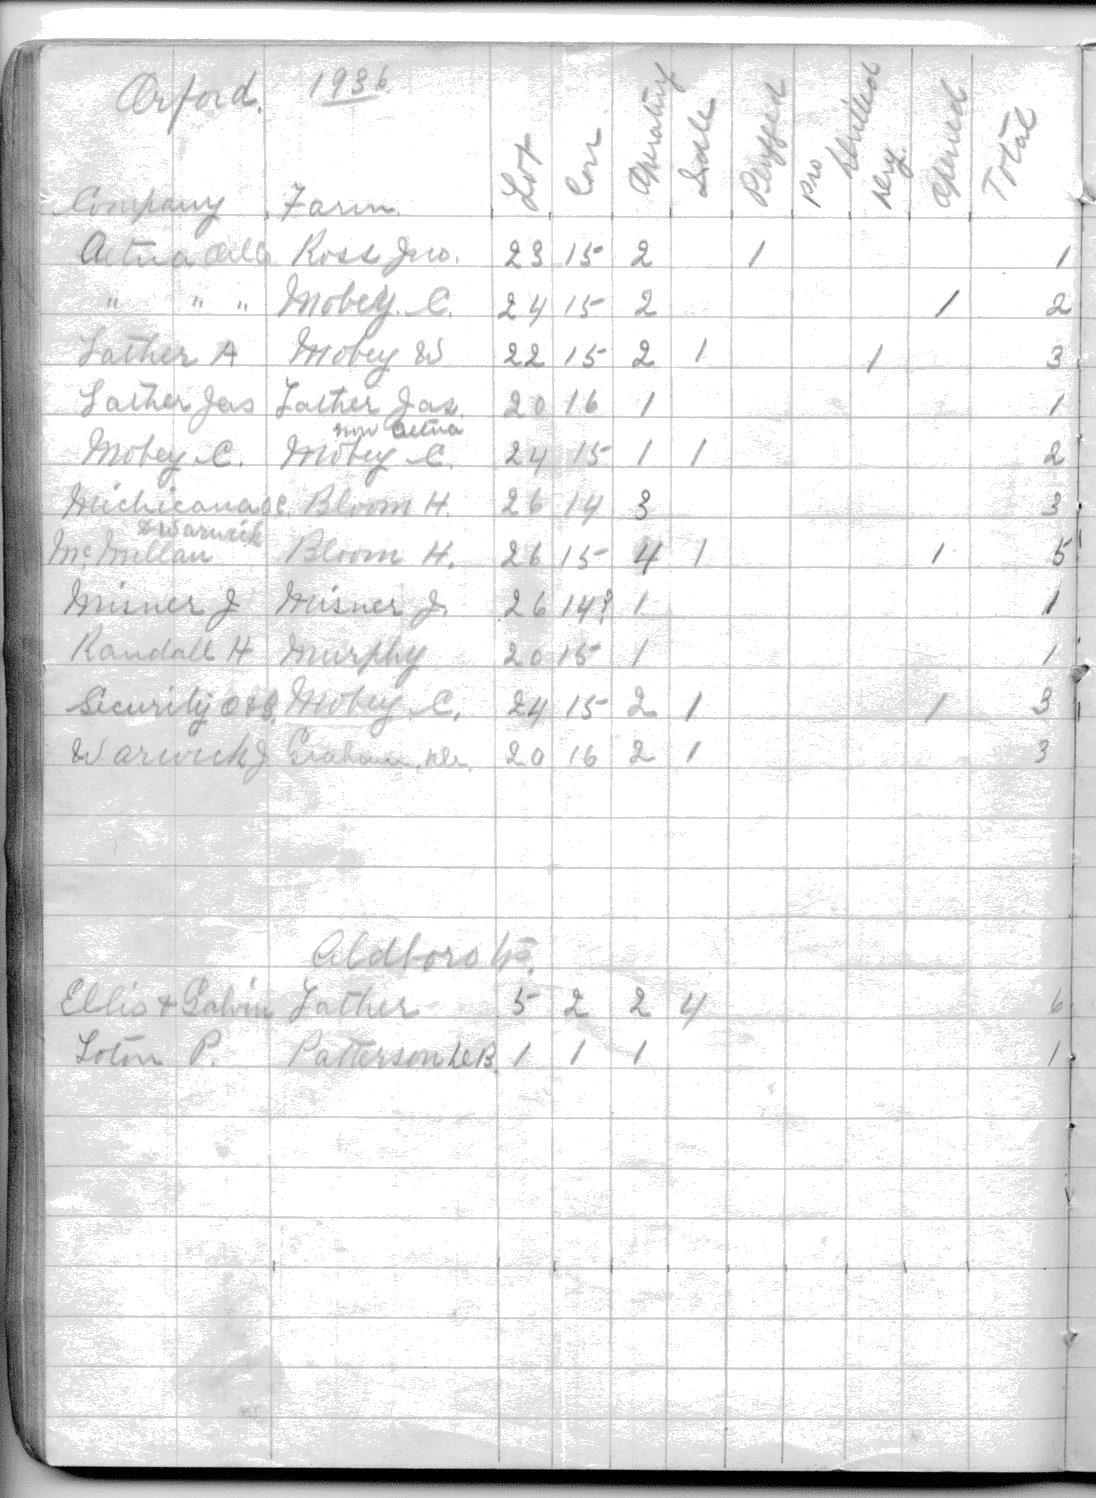 Orford. 1936
Company Farm. Lot Con Operating Idle Plugged Pro Drilled Dry. Opened Total
Aetna Oil Co Ross Jno. 23 15 2 1 1
" " " Mobey. C. 24 15 2 1 2
Lather A Mobey W 22 15 2 1 1 3
Lather Jas Lather Jas. 20 16 1 1
now Aetna
Mobey C. Mobey C. 24 15 1 1 2
Bloom H. 26 14 3 3
& Warwick
McMillan Bloom H. 26 15 4 1 1 5
Misner J Misner J. 26 14? 1 1
Randall H Murphy 20 15 1 1
Security Mobey C. 24 15 2 1 1 3
Warwick J. Graham 20 16 2 1 3
Aldboro
Ellis & Galvin Lather 5 2 2 4 6
Loton P. Patterson 1 1 1 1